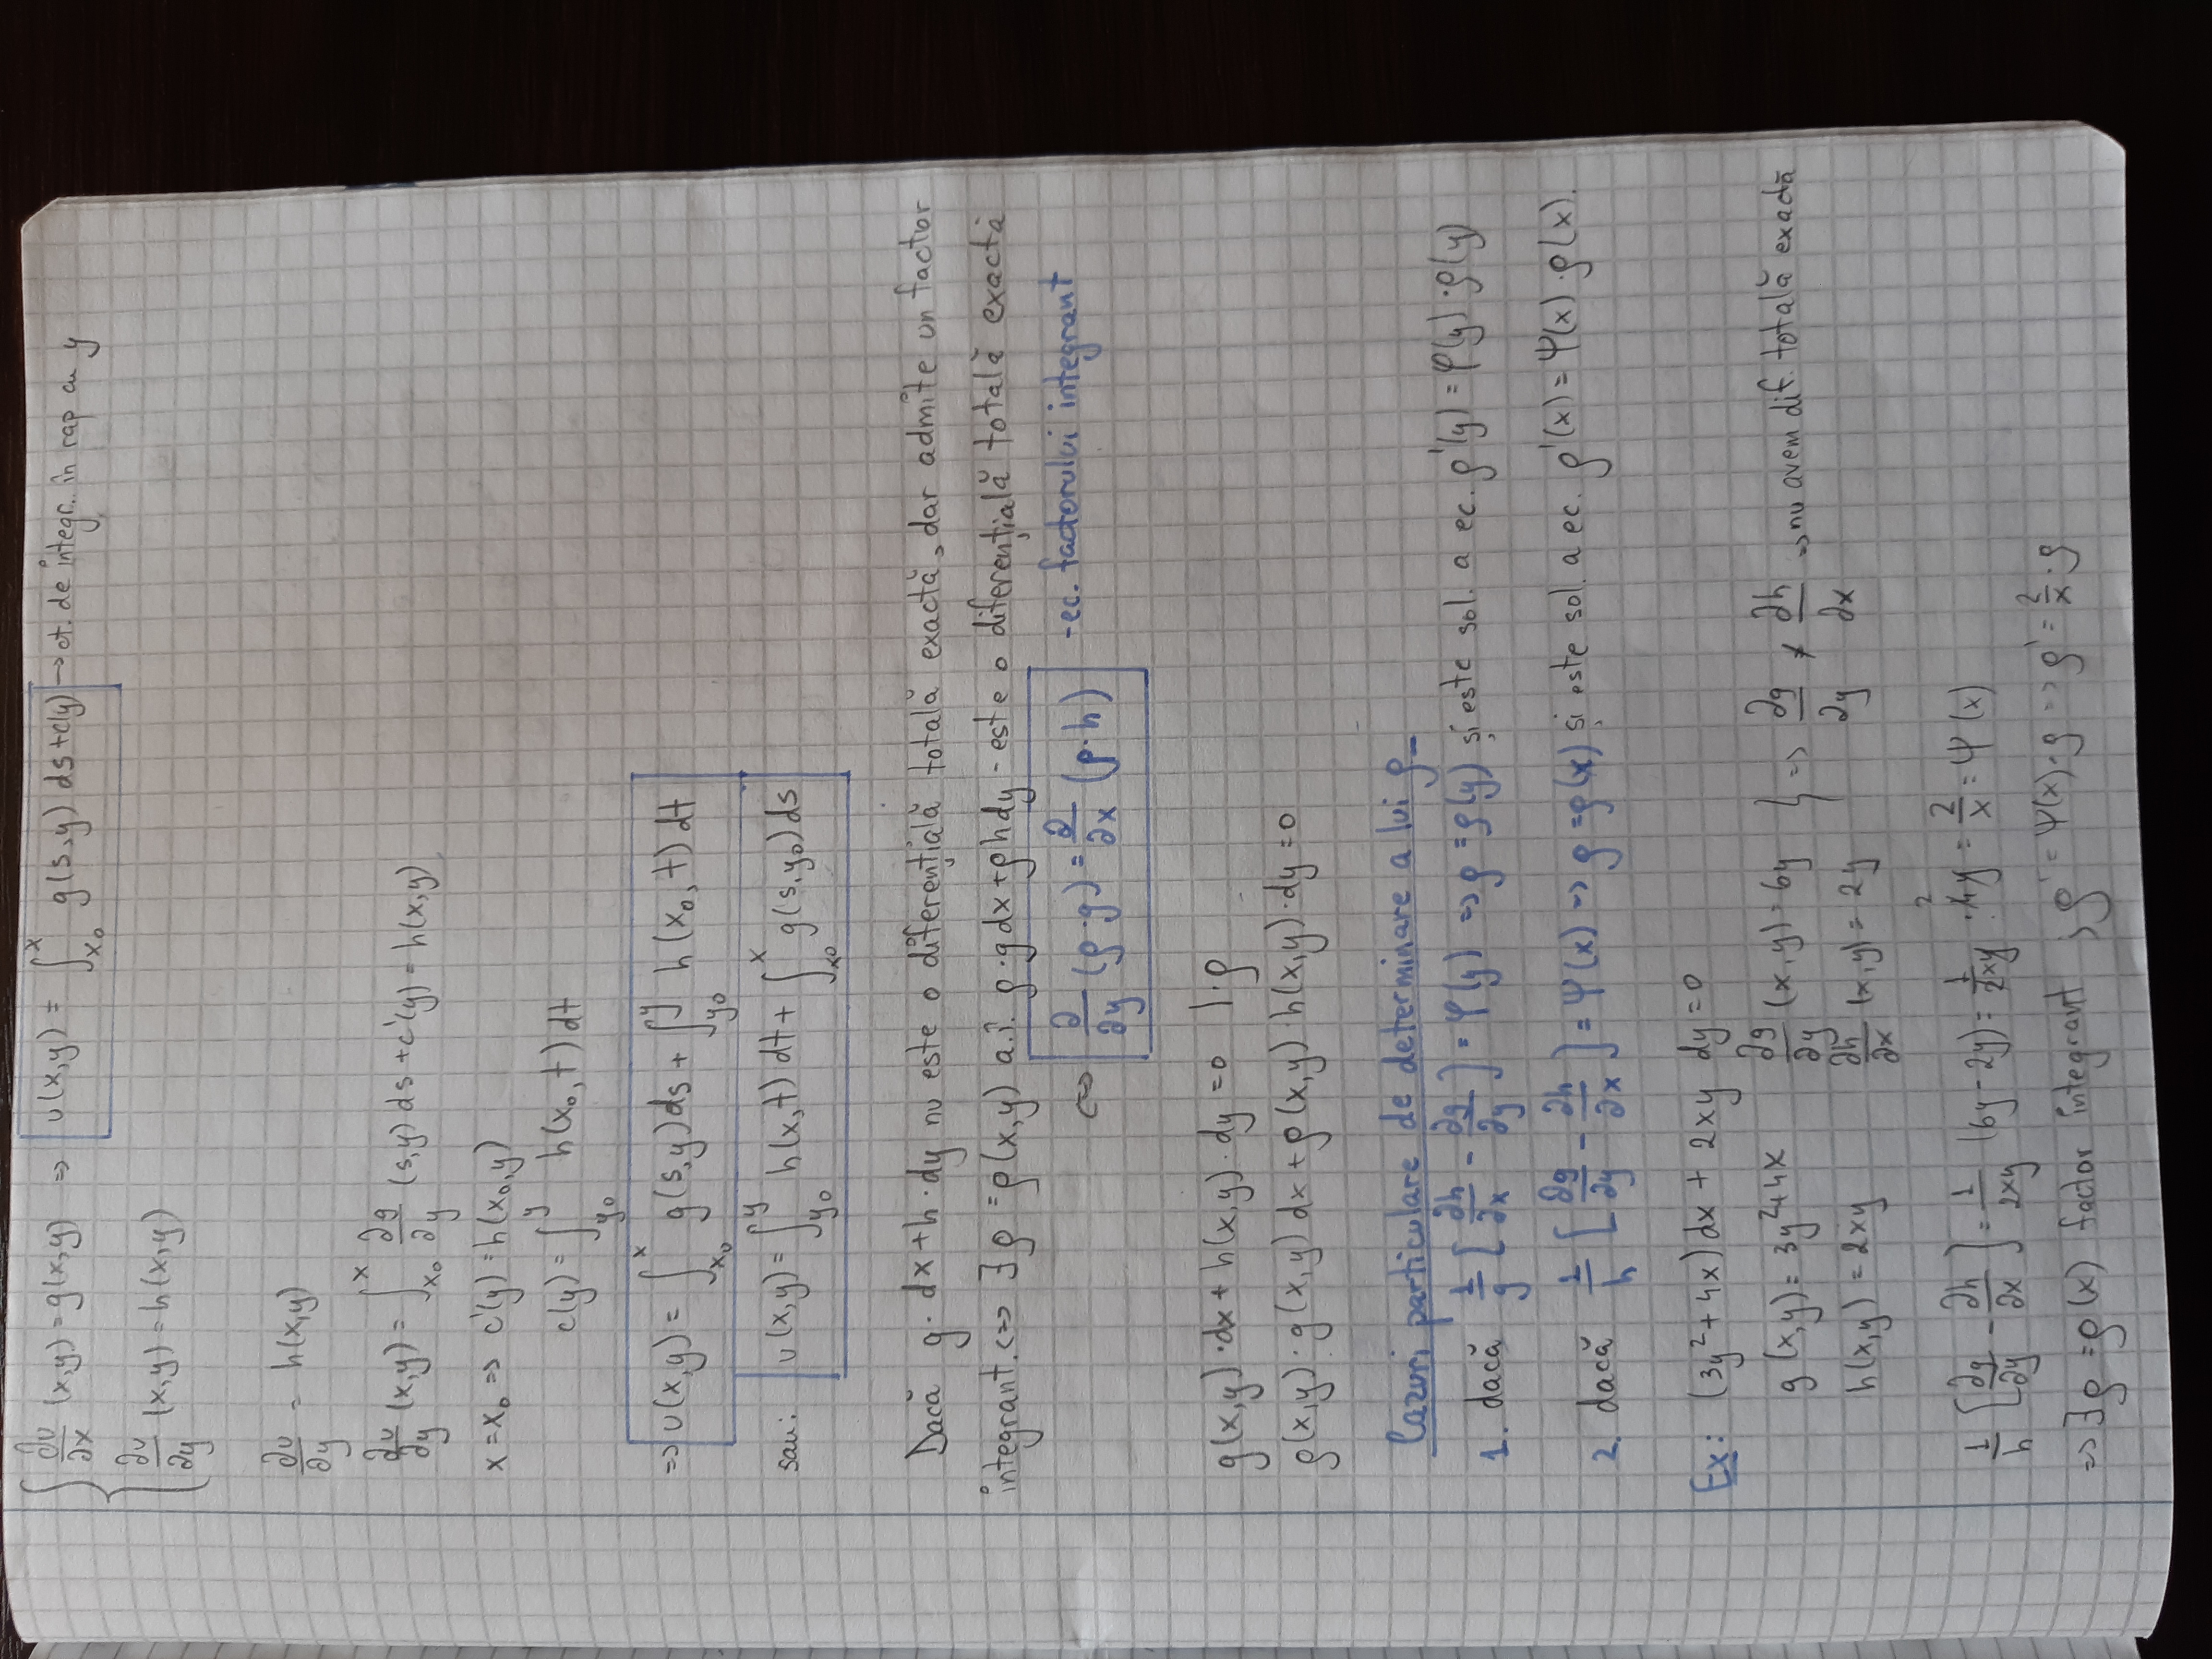 ∂u/∂x (x,y) = g(x,y) => u(x,y) = ∫_{x₀}^{x} g(s,y) ds + c(y) → ct. de integr. în rap cu y
∂u/∂y (x,y) = h(x,y)
∂u/∂y = h(x,y)
∂u/∂y (x,y) = ∫_{x₀}^{x} ∂g/∂y (s,y) ds + c'(y) = h(x,y)
x = x₀ => c'(y) = h(x₀,y)
c(y) = ∫_{y₀}^{y} h(x₀,t) dt
=> u(x,y) = ∫_{x₀}^{x} g(s,y) ds + ∫_{y₀}^{y} h(x₀,t) dt
sau: u(x,y) = ∫_{y₀}^{y} h(x,t) dt + ∫_{x₀}^{x} g(s,y₀) ds
Dacă g·dx+h·dy nu este o diferențială totală exactă, dar admite un factor
integrant. <=> ∃ρ = ρ(x,y) a.î. ρ·g dx+ρh dy - este o diferențială totală exactă
<=> ∂/∂y (ρ·g) = ∂/∂x (ρ·h) -ec. factorului integrant
g(x,y)·dx + h(x,y)·dy = 0 |·ρ
ρ(x,y)·g(x,y) dx + ρ(x,y)·h(x,y)·dy = 0
Cazuri particulare de determinare a lui ρ_
1. dacă 1/g [∂h/∂x - ∂g/∂y] = φ(y) => ρ = ρ(y) și este sol. a ec. ρ'(y) = φ(y)·ρ(y)
2. dacă 1/h [∂g/∂y - ∂h/∂x] = Ψ(x) => ρ = ρ(x) și este sol. a ec. ρ'(x) = Ψ(x)·ρ(x).
Ex: (3y²+4x)dx + 2xy dy = 0
g(x,y) = 3y²+4x ∂g/∂y (x,y) = 6y } => ∂g/∂y ≠ ∂h/∂x => nu avem dif. totală exactă
h(x,y) = 2xy ∂h/∂x (x,y) = 2y
1/h [∂g/∂y - ∂h/∂x] = 1/2xy (6y-2y) = 1/2xy · 4y 2 = 2/x = Ψ(x)
=> ∃ρ = ρ(x) factor integrant ; ρ' = Ψ(x)·ρ => ρ' = 2/x · ρ